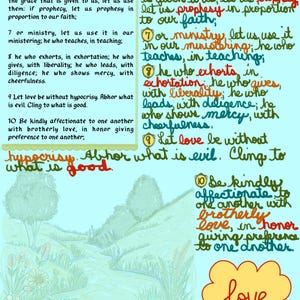 the grace that is given to us, let us use
them: if prophesy, let us prophesy in
proportion to our faith;
7 or ministry, let us use it in our
ministering; he who teaches, in teaching;
8 he who exhorts, in exhortation; he who
gives, with liberality; he who leads, with
diligence; he who shows mercy, with
cheerfulness.
9 Let love be without hypocrisy Abhor what
is evil Cling to what is good.
10 Be kindly affectionate to one another
with brotherly love, in honor giving
preference to one another.
let us prophesy in proportion
to our faith;
7 or ministry, let us use it
in our ministering; he who
teaches, in teaching;
8 he who exhorts, in
exhortation; he who gives,
with liberality; he who
leads, with diligence; he
who shows mercy, with
cheerfulness.
9 Let love be without
hypocrisy. Abhor what is evil. Cling to
what is good
10 Be kindly
affectionate to
one another with
brotherly
love, in honor
giving preference
to one another.
Love